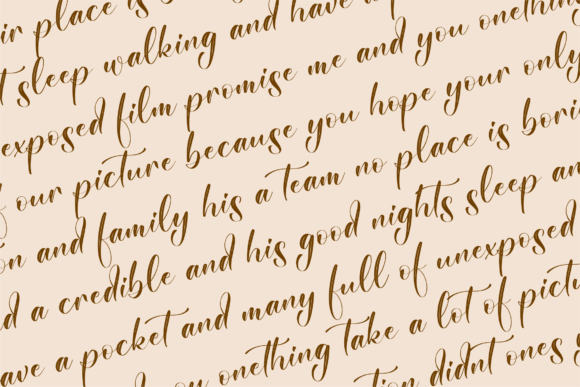 place is
sleep walking and have a
exposed film promise me and you onething
our picture because you hope your only
and family his a team no place is bori
d a credible and his good nights sleep an
ave a pocket and many full of unexposed
you onething take a lot of pictu
didnt ones